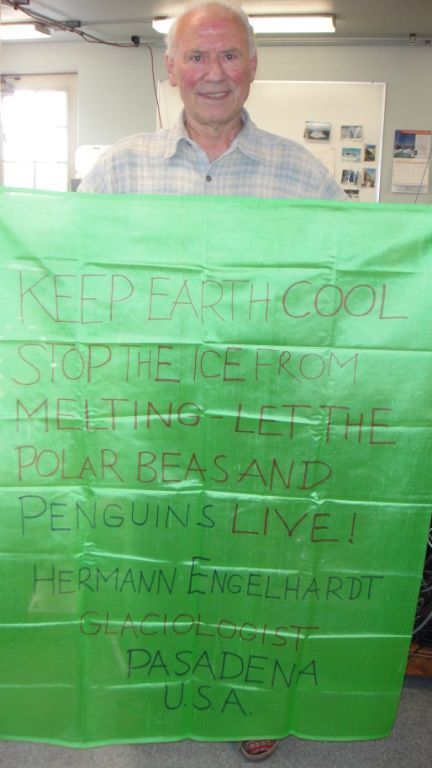 KEEP EARTH COOL
STOP THE ICE FROM
MELTING - LET THE
POLAR BEAS AND
PENGUINS LIVE!
HERMANN ENGELHARDT
GLACIOLOGIST
PASADENA
U.S.A.